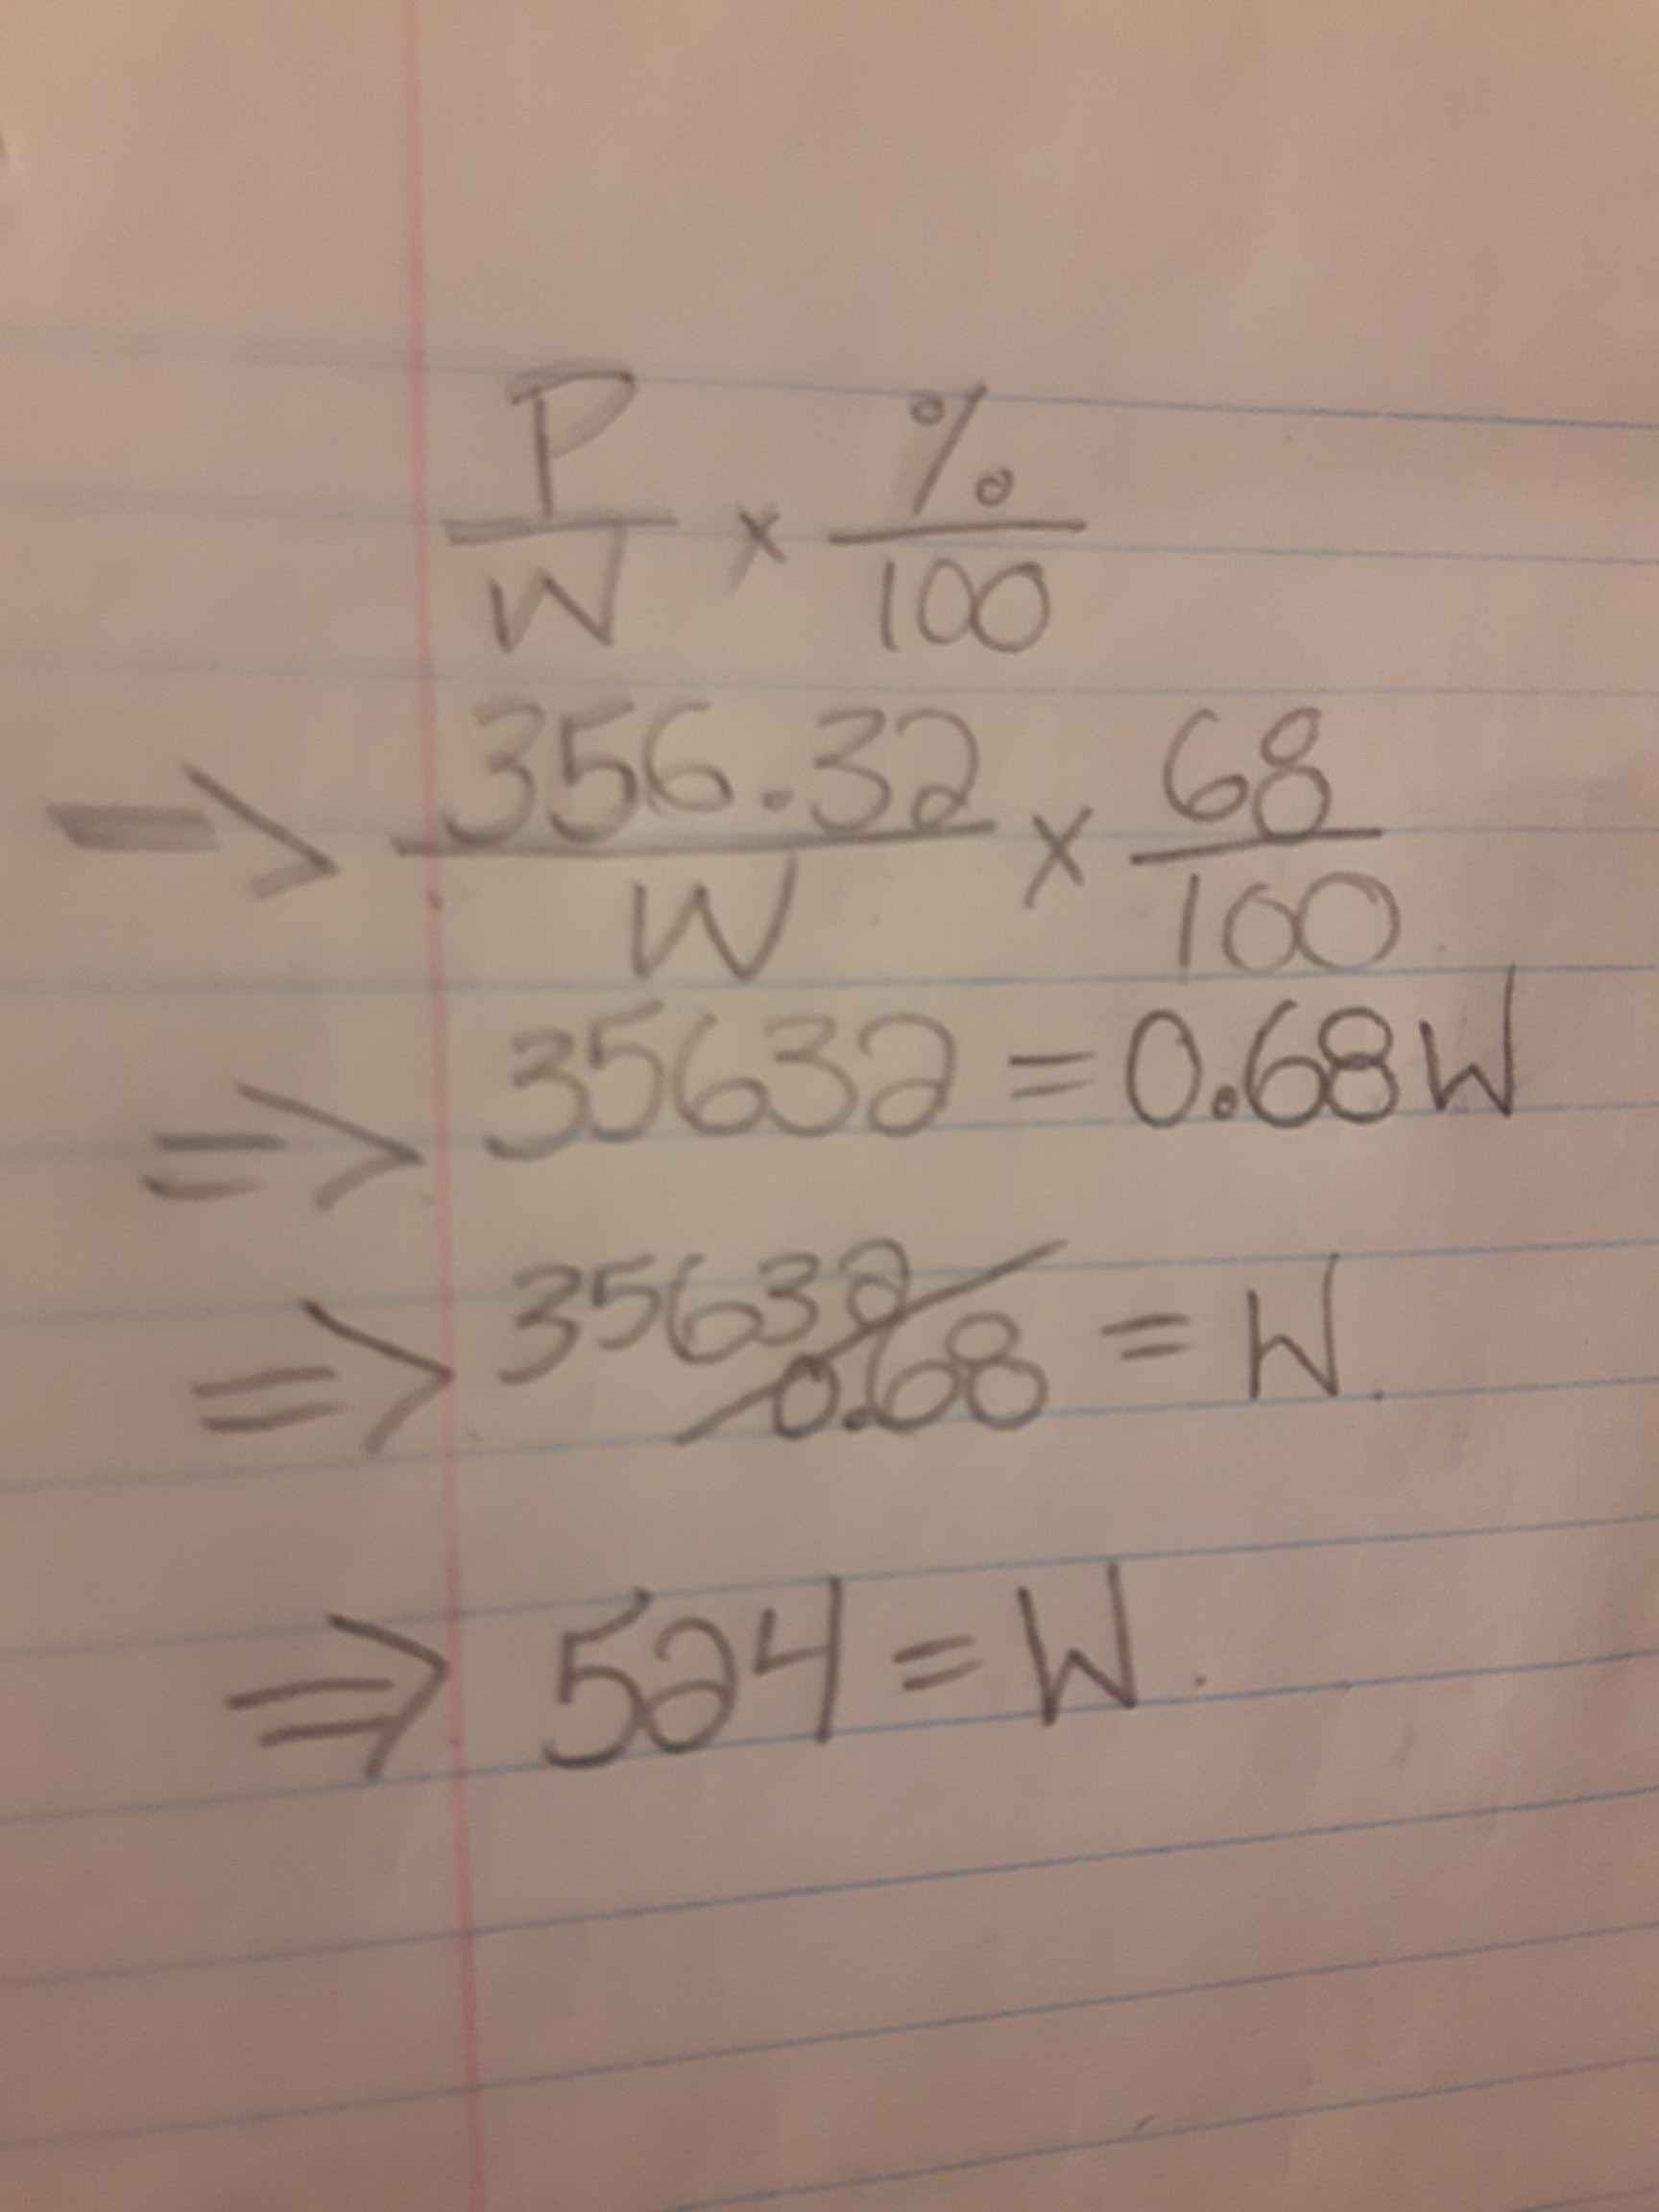 P/W x %/100
-> 356.32/W x 68/100
=> 35632 = 0.68W
=> 35632/0.68 = W.
=> 524 = W.